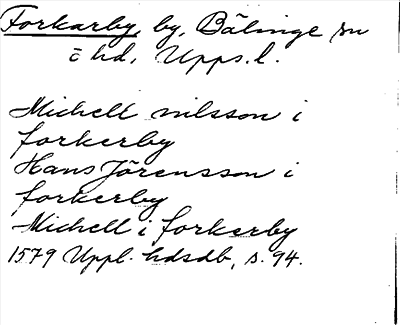 Forkarby, by, Bälinge sn
o hd, Upps. l.
Michell nilsson i
forkerby
Hans Jörensson i
forkerby
Michell i forkerby
1579 Uppl. hdsdb, s. 94.